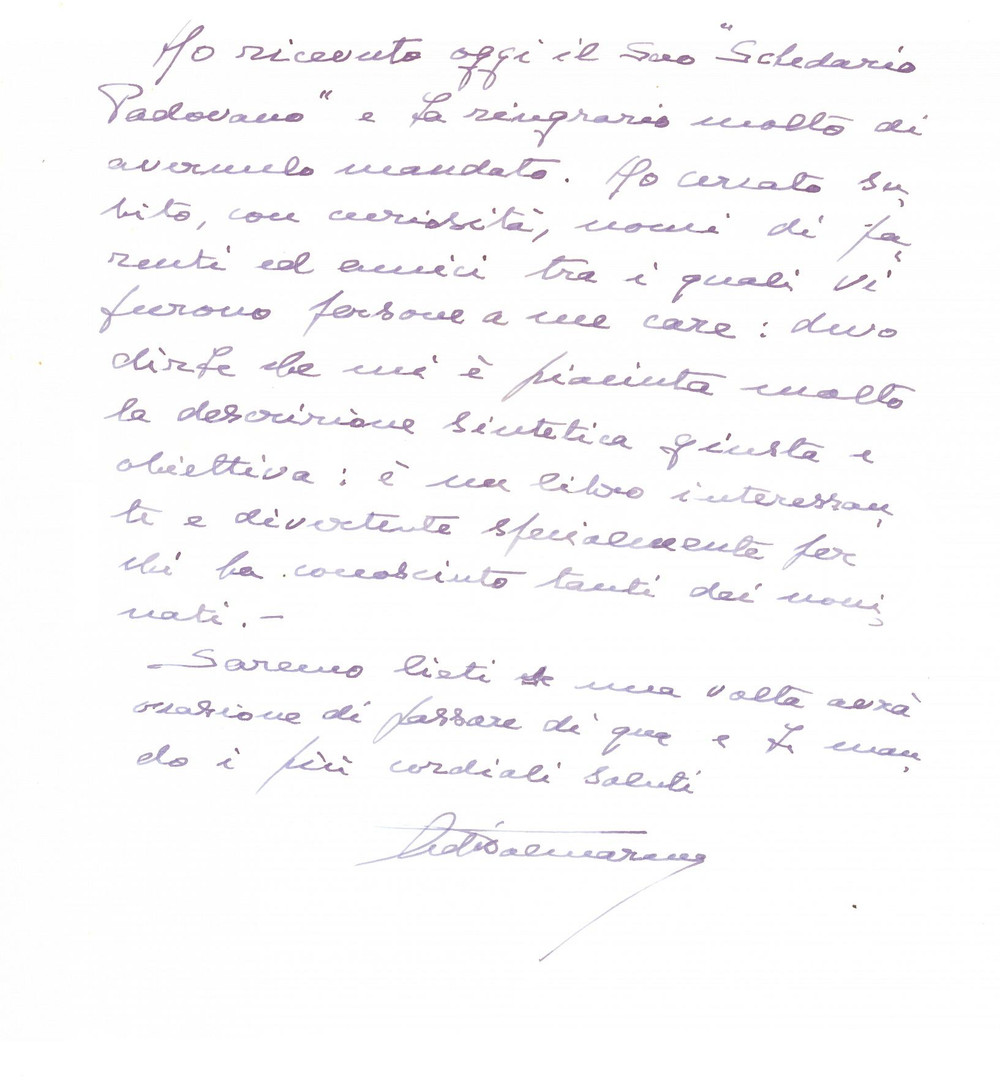 Ho ricevuto oggi il Suo "Schedario
Padovano" e La ringrazio molto di
avermelo mandato. Ho cercato su,
bito, con curiosità, nomi di pa,
renti ed amici tra i quali vi
furono persone a me care: devo
dirLe che mi è piaciuta molto
la descrizione sintetica giusta e
obiettiva: è un libro interessan,
te e divertente specialmente per
chi ha conosciuto tanti dei nomi,
nati.-
Saremo lieti se una volta avrà
occasione di passare di qua e Le man,
do i più cordiali saluti